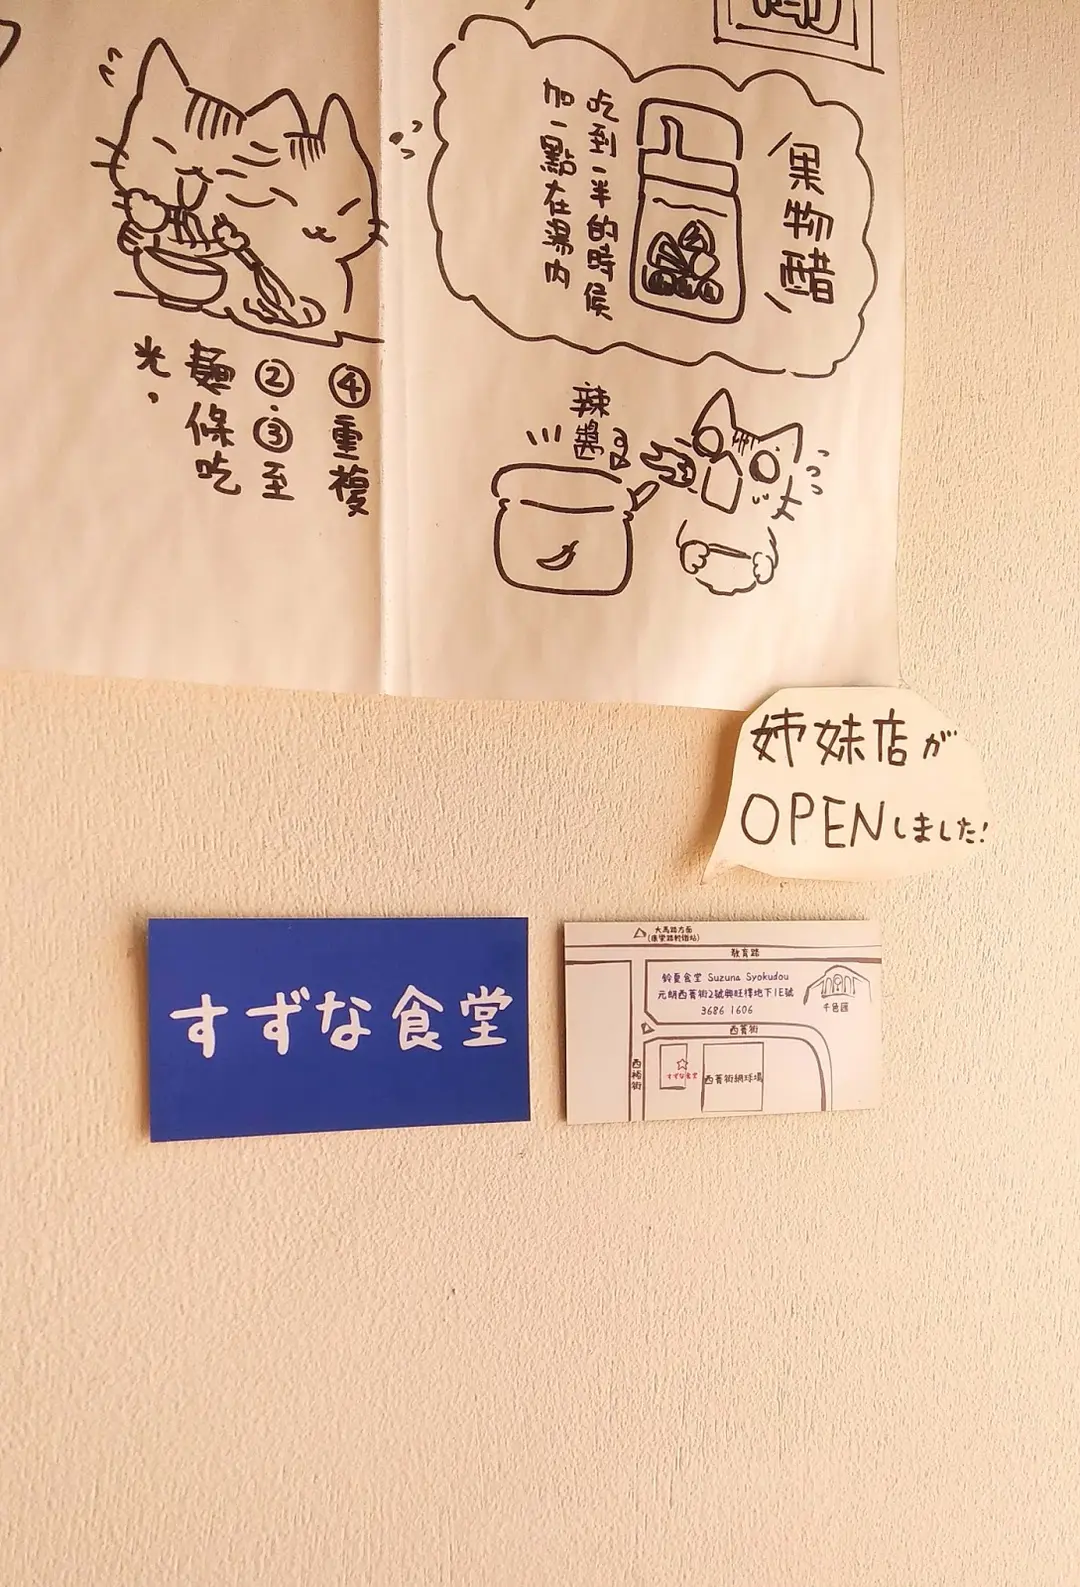 果物醋
吃到一半的時候
加一點在湯內
④重複
②.③至
麵條吃
光。
辣醬
姉妹店が
OPENしました!
すずな食堂
大馬路方面
教育路
鈴夏食堂 Suzuna Syokudou
元朗西菁街2號興旺樓地下1E號
3686 1606
千色匯
西菁街
西裕街
すずな食堂
西菁街網球場